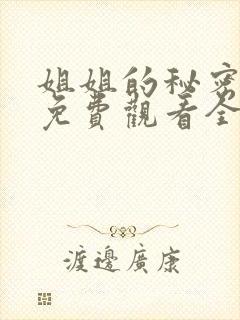 姐姐的秘密
免費觀看全
渡邊廣康